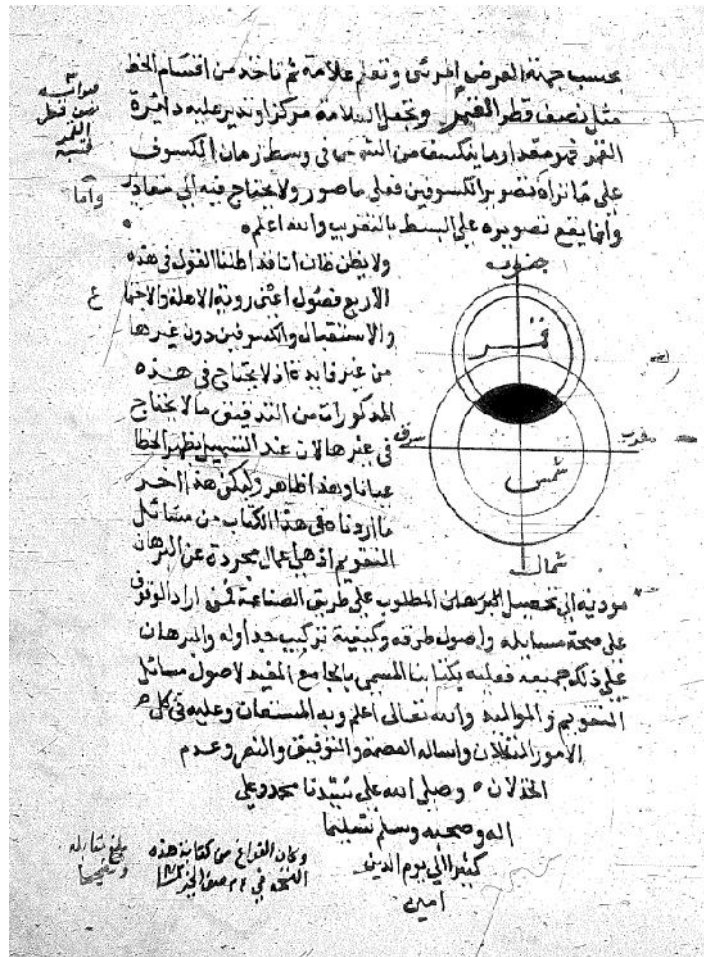 بحسب جهة العرض المرئي وتعلم علامة ثم تاخذ من اقسام الخط
مثل نصف قطر القمر وتجعل العلامة مركزا وتدير عليه دائرة
القمر فهو مقدار ما ينكسف من الشمس في وسط زمان الكسوف
على ما نراه تصوير الكسوفين فعلى ما صور ولا يحتاج فيه الى
وانما يقع تصويره على البسط بالتقريب والله اعلم
صوابه
نصف قطر
القمر
واما
ولا يظن ظان اننا قد اطلنا القول في هذه
الاربع فصول اعنى روية الاهلة والاجتما
ع
والاستقبال والكسوفين دون غيرها
من غير فايدة اذ لا يحتاج في هذه
المذكورات من التدقيق ما لا يحتاج
في غيرها لان عند التسهيل يظهر الخطا
عيانا وهذا ظاهر وليكن هذا اخر
ما اردناه في هذا الكتاب من مسائل
التقويم اذ هي اعمال مجردة عن البرهان
جنوب
قمر
شرق
مغرب
شمس
شمال
مودية الى تحصيل المطلوب على طريق الصناعة فمن اراد الوقوف
على صحة مسايله واصول طرقه وكيفية تركيب جداوله والبرهان
على ذلك جميعه فعليه بكتابنا المسمى بالجامع المفيد لاصول مسائل
التقويم والمواليد والله تعالى اعلم وبه المستعان وعليه في كل
الامور التكلان واساله العصمة والتوفيق والنصر وعدم
الخذلان وصلى الله على سيدنا محمد وعلى
اله وصحبه وسلم تسليما
كثيرا الى يوم الدين
امين
وكان الفراغ من كتابة هذه
النسخة في صفر الخير
بلغ مقابلة
وتصحيحا